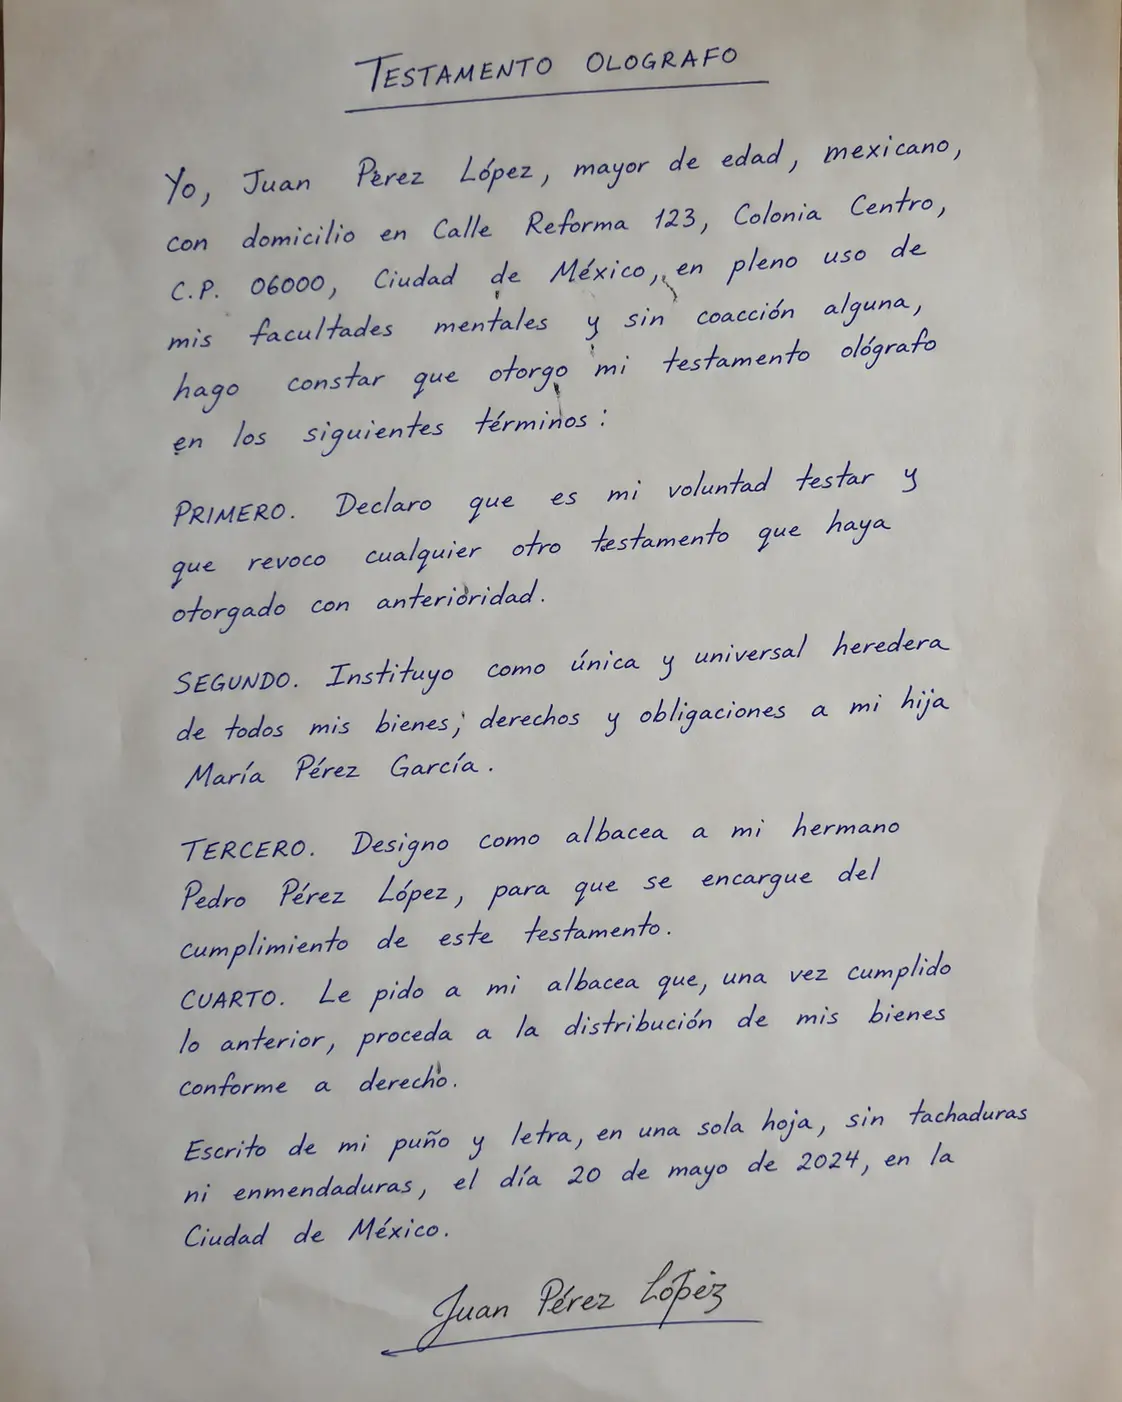 TESTAMENTO OLOGRAFO
Yo, Juan Pérez López, mayor de edad, mexicano,
con domicilio en Calle Reforma 123, Colonia Centro,
C.P. 06000, Ciudad de México, en pleno uso de
mis facultades mentales y sin coacción alguna,
hago constar que otorgo mi testamento ológrafo
en los siguientes términos:
PRIMERO. Declaro que es mi voluntad testar y
que revoco cualquier otro testamento que haya
otorgado con anterioridad.
SEGUNDO. Instituyo como única y universal heredera
de todos mis bienes, derechos y obligaciones a mi hija
María Pérez García.
TERCERO. Designo como albacea a mi hermano
Pedro Pérez López, para que se encargue del
cumplimiento de este testamento.
CUARTO. Le pido a mi albacea que, una vez cumplido
lo anterior, proceda a la distribución de mis bienes
conforme a derecho.
Escrito de mi puño y letra, en una sola hoja, sin tachaduras
ni enmendaduras, el día 20 de mayo de 2024, en la
Ciudad de México.
Juan Pérez López